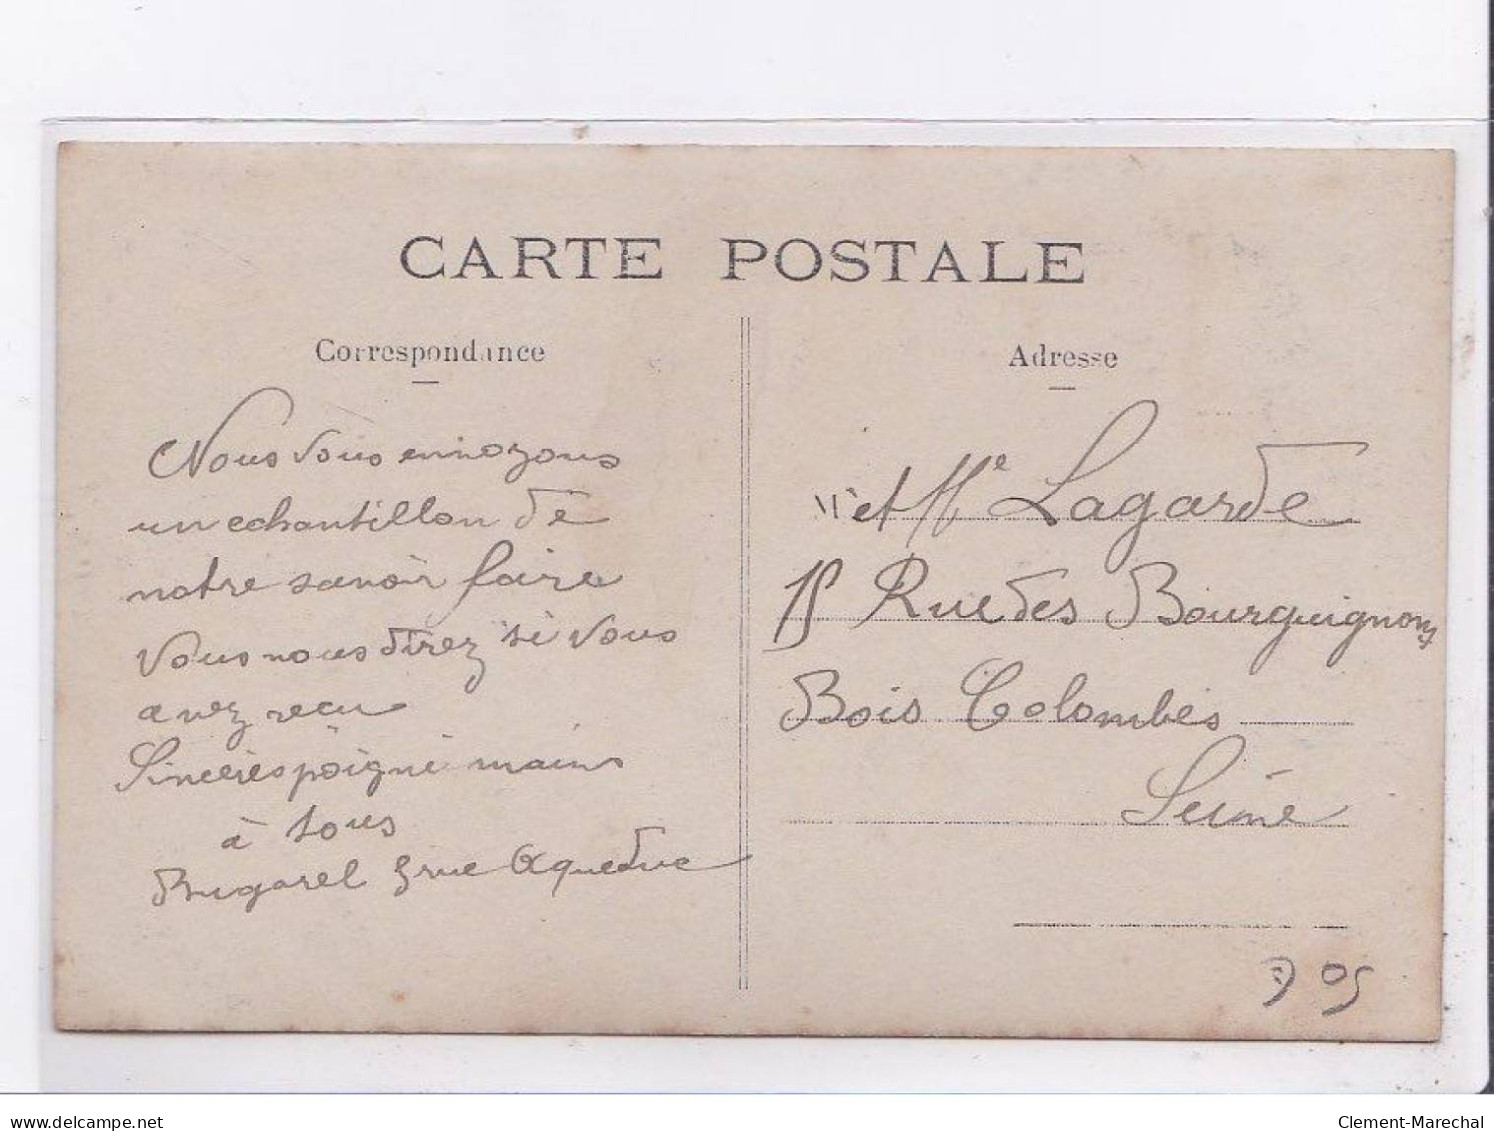 CARTE POSTALE
Correspondance
Adresse
Nous vous envoyons
un echantillon de
notre savoir faire
vous nous direz si vous
avez recu
Sincères poigné mains
à tous
Bugarel 3 rue Aqueduc
et Me Lagarde
15 Rue des Bourguignons
Bois Colombes
Seine
delcampe.net
Clement-Marechal